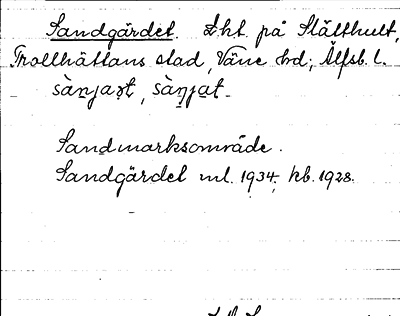 Sandgärdet. Lht. på Slätthult,
Trollhättans stad, Väne hd, Älfsb. l.
sànjaṛt, sànjat
Sandmarksområde.
Sandgärdet ml. 1934; kb. 1928.